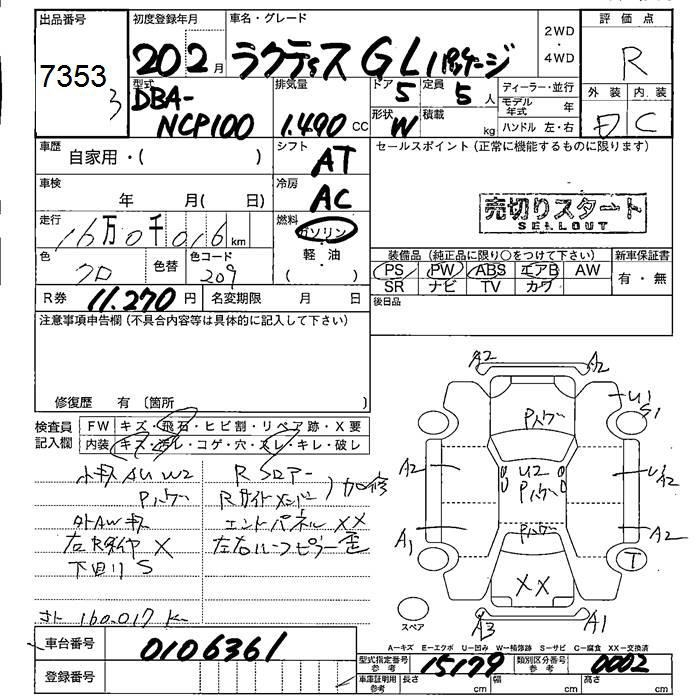 出品番号
7353
3
初度登録年月
20 2 月
車名・グレード
ラクティス GLパッケージ
2WD
・
4WD
評 価 点
R
外 装
内 装
C
型式
DBA-
NCP100
排気量
1.490 CC
ドア 5
定員 5 人
形状 W
積載 kg
ディーラー・並行
モデル年式 年
ハンドル 左・右
車歴
自家用・( )
シフト
AT
セールスポイント(正常に機能するものに限ります)
車検
年 月( 日)
冷房
AC
売切りスタート
SELLOUT
走行
16万0千016 km
燃料
ガソリン
軽・油
( )
色
クロ
色替
色コード
209
装備品(純正品に限り○をつけて下さい)
新車保証書
PS PW ABS エアB AW
SR ナビ TV カワ
有・無
R券 11.270 円
名変期限 月 日
後日品
注意事項申告欄(不具合内容等は具体的に記入して下さい)
修復歴 有(箇所 )
検査員
記入欄
FW キズ・飛石・ヒビ割・リペア跡・X要
内装 キズ・汚レ・コゲ・穴・スレ・キレ・破レ
小キズ AU W2
Rフロアー
Rサイドメンバー
加修
外AWキズ
エンドパネル XX
左RタイヤX
左右ルーフピラー歪
下回りS
160.017 K
A2
A2
U1
S1
A2
U2
A2
A1
A2
T
XX
A3
A1
スペア
A-キズ E-エクボ U-凹み W-補修跡 S-サビ C-腐食 XX-交換済
車台番号
0106361
型式指定番号
参考
15179
類別区分番号
参考
0002
登録番号
車庫証明用
参考
長さ cm
幅 cm
高さ cm